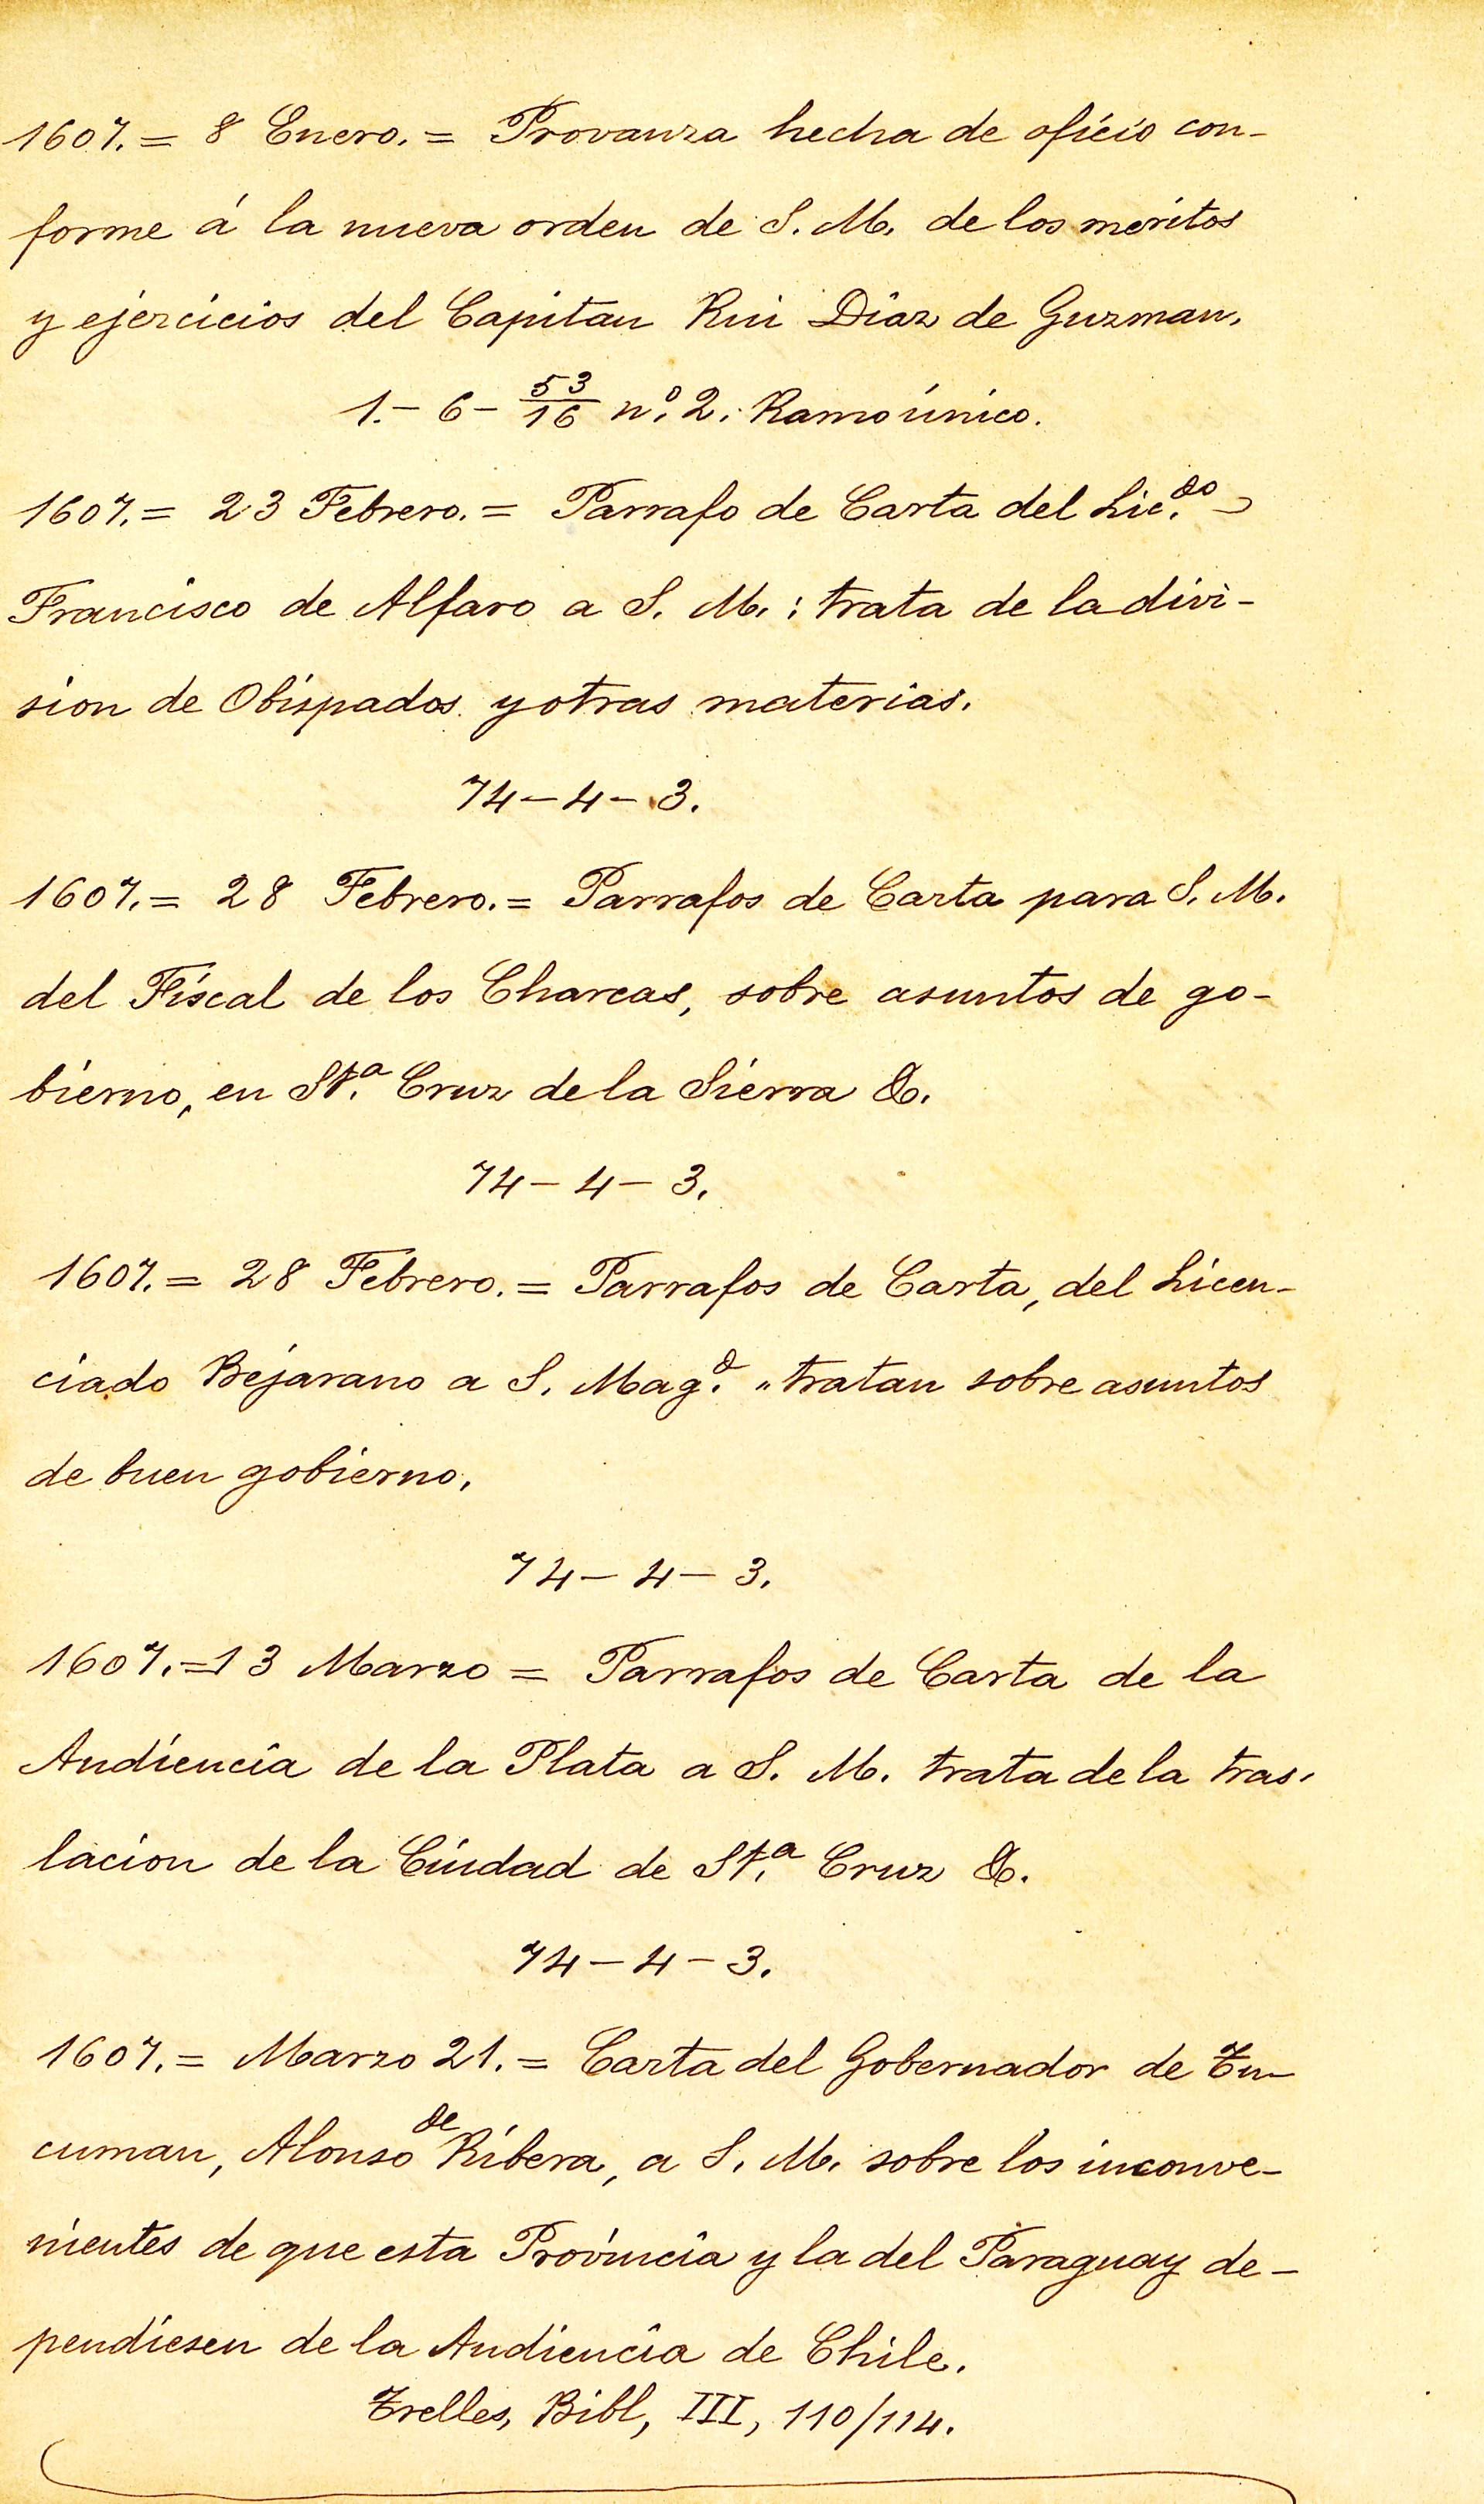 1607.= 8 Enero.= Provanza hecha de oficio con-
forme á la nueva orden de S. M. de los meritos
y ejercicios del Capitan Rui Diaz de Guzman.
1.- 6- 53/16 nº. 2. Ramo único.
1607.= 23 Febrero.= Parrafo de Carta del Lic.do
Francisco de Alfaro a S. M.: trata de la divi-
sion de Obispados y otras materias.
74-4-3.
1607.= 28 Febrero.= Parrafos de Carta para S. M.
del Fiscal de los Charcas, sobre asuntos de go-
bierno, en St.a Cruz de la Sierra &.
74-4-3.
1607.= 28 Febrero.= Parrafos de Carta, del Licen-
ciado Bejarano a S. Mag.d „ tratan sobre asuntos
de buen gobierno.
74-4-3.
1607.=13 Marzo = Parrafos de Carta de la
Audiencia de la Plata a S. M. trata de la tras-
lacion de la Ciudad de St.a Cruz &.
74-4-3.
1607.= Marzo 21.= Carta del Gobernador de Tu-
cuman, Alonso de Ribera, a S. M. sobre los inconve-
nientes de que esta Provincia y la del Paraguay de-
pendiesen de la Audiencia de Chile.
Trelles, Bibl, III, 110/114.